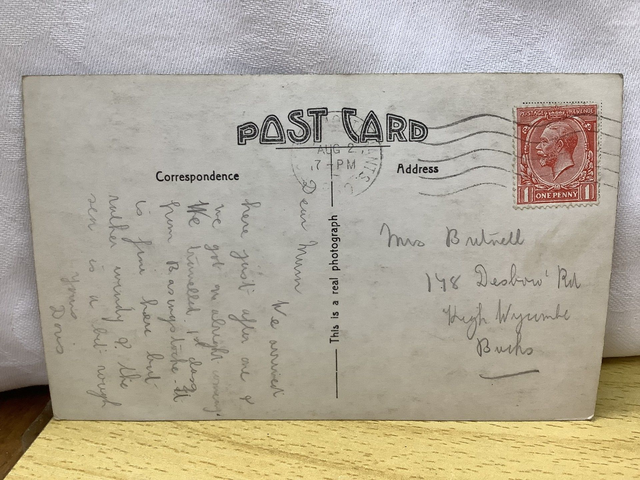 POST CARD
AUG 2
7 - PM
HANTS
Correspondence
Address
This is a real photograph
POSTAGE REVENUE
1 ONE PENNY 1
Dear Mum
We arrived
here just after one &
we got on alright coming
We travelled 1st class
from Basingstoke. It
is fine here but
rather windy & the
sea is a bit rough
Yours
Doris
Mrs Butnell
178 Desboro' Rd
High Wycombe
Bucks